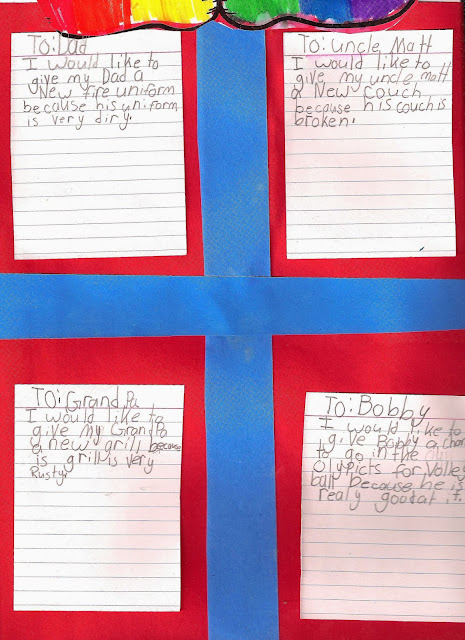 To: Dad
I would like to
give my Dad a
New fire uniform
because his uniform
is very diry.
To: uncle Matt
I would like to
give my uncle matt
a New couch
because his couch is
broken.
To: Grand Pa
I would like to
give my Grand Pa
a new grill because
is grill is very
Rusty.
To: Bobby
I would like to
give Bobby a chan
to go in the
Olypicts for Volley
ball because he is
realy good at it.